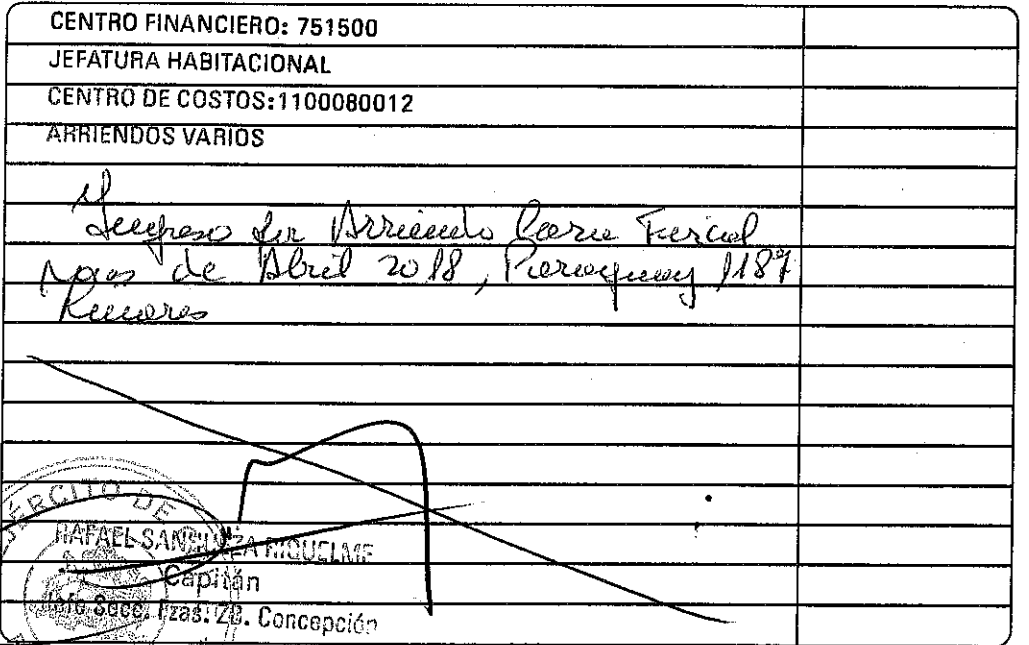 CENTRO FINANCIERO: 751500
JEFATURA HABITACIONAL
CENTRO DE COSTOS:1100080012
ARRIENDOS VARIOS
Ingreso por Arriendo Casa Fiscal
mes de Abril 2018, Paraguay 1187
EJÉRCITO DE
RAFAEL RIQUELME
Capitán
Jefe Secc. Fzas. ZB. Concepción